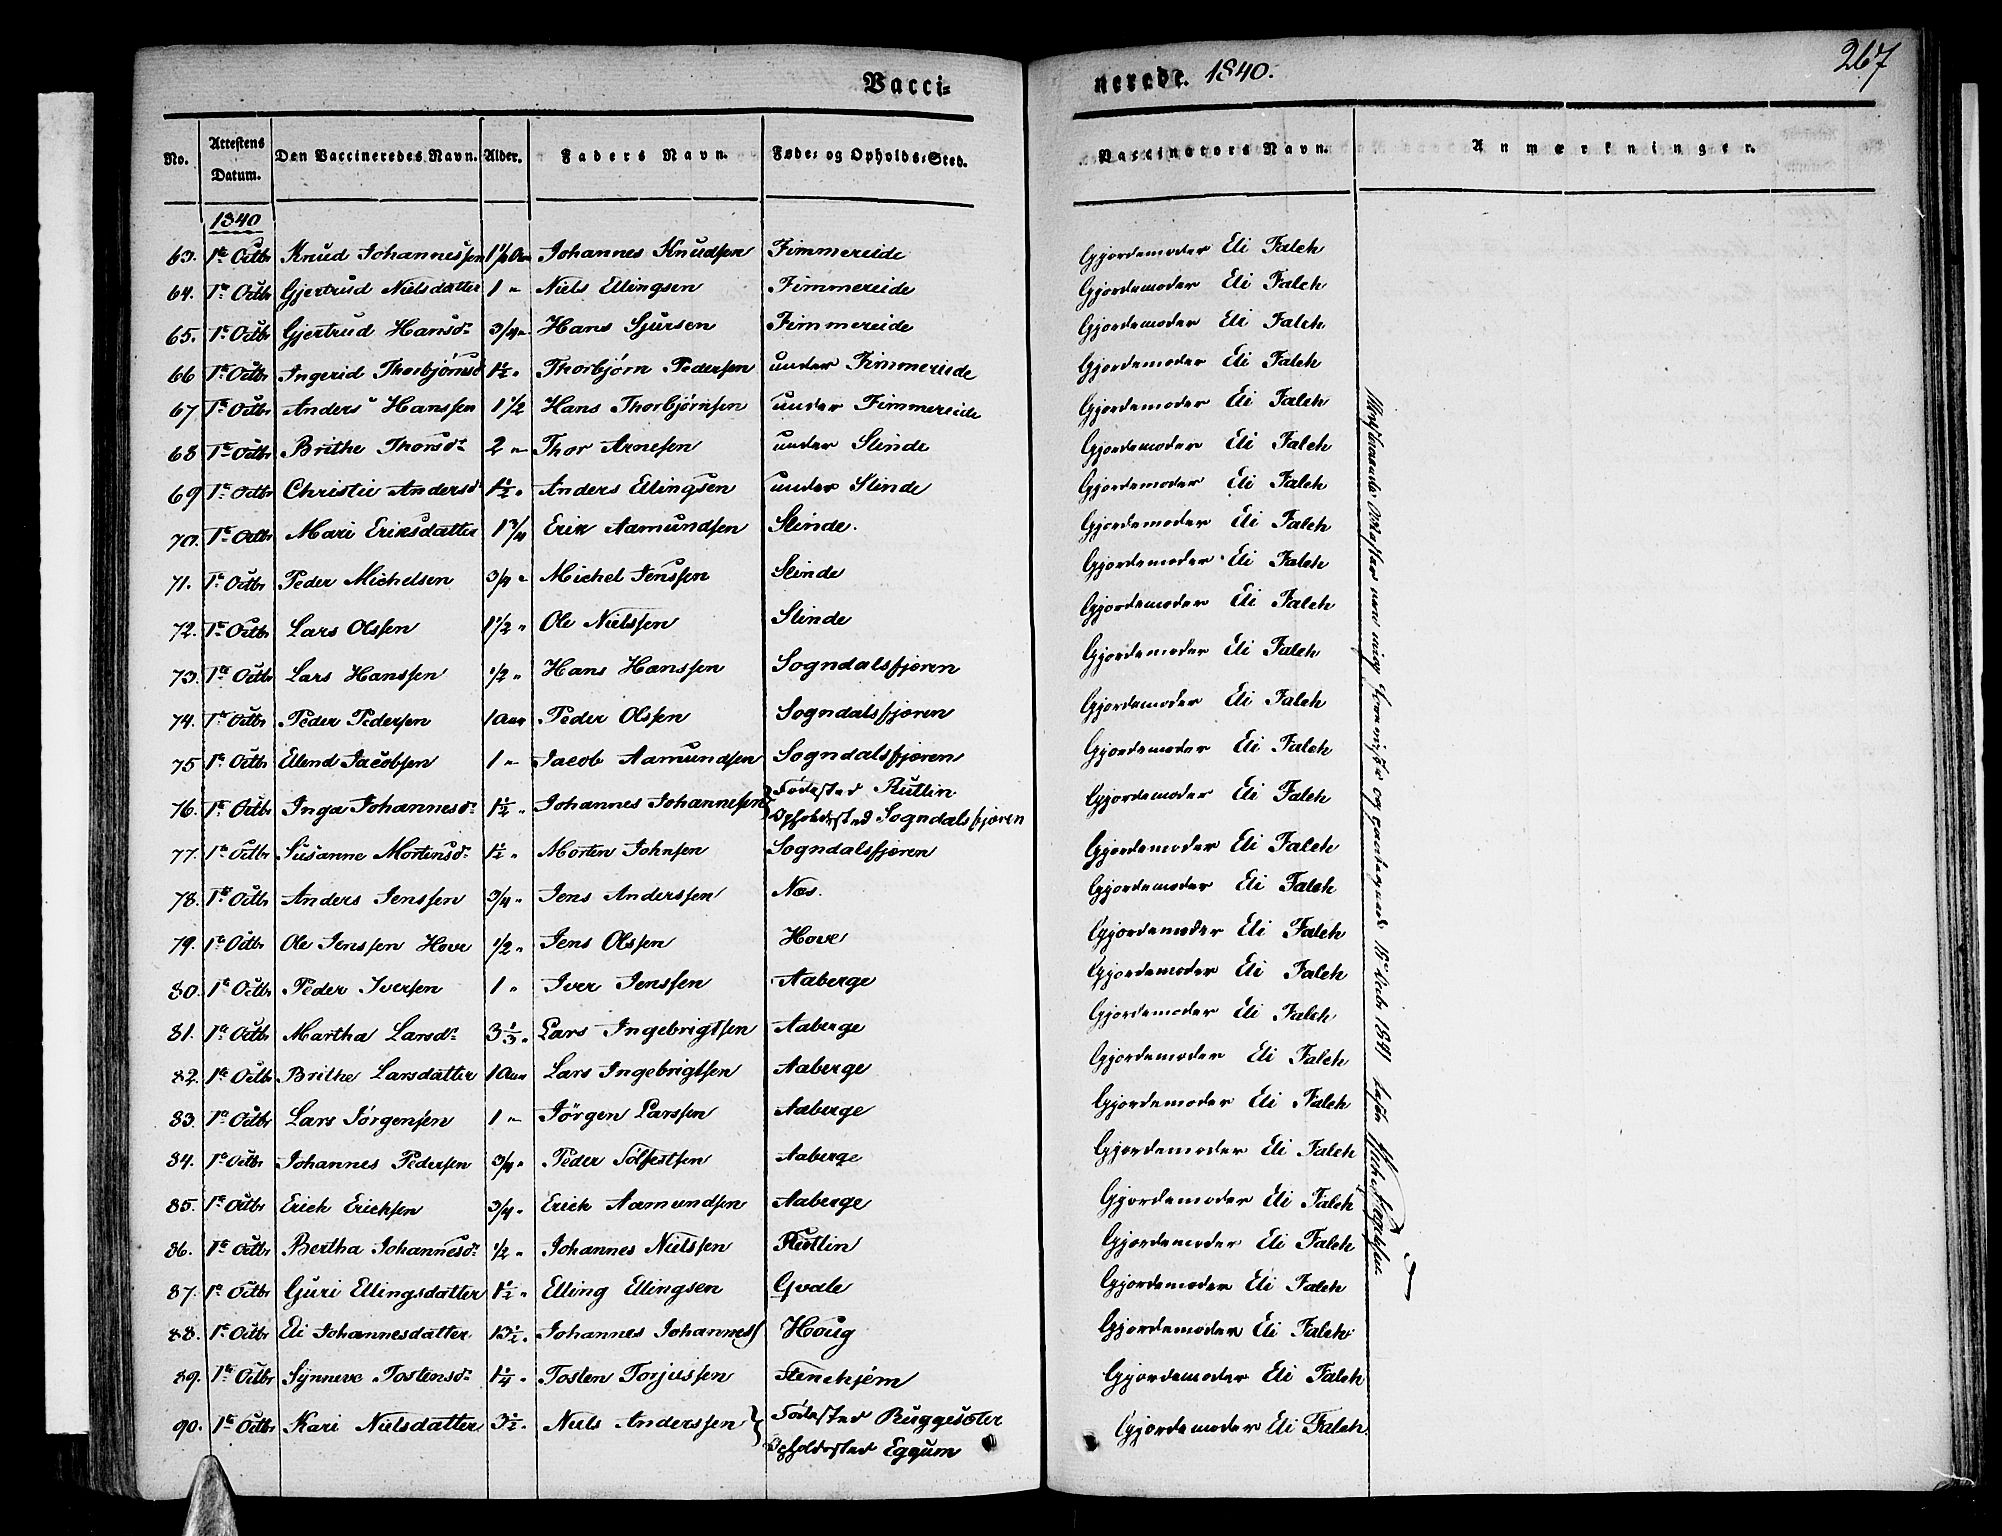 Vacci- nerede. 1840. 267
No. Attestens Datum. Den Vaccineredes Navn. Alder. Faders Navn. Føde- og Opholds-Sted. Vaccinators Navn. Anmærkninger.
1840
63. 1te Octbr Knud Johannessen 1 1/2 Aar Johannes Knudsen Fimmereide Gjordemoder Eli Falch
64. 1te Octbr Gjertrud Nielsdatter 1 " Niels Ellingsen Fimmereide Gjordemoder Eli Falch
65. 1te Octbr Gjertrud Hansdr 3/4 " Hans Sjursen Fimmereide Gjordemoder Eli Falch
66 1te Octbr Ingerid Thorbjørnsd 1 1/2 " Thorbjørn Pedersen under Fimmereide Gjordemoder Eli Falch
67 1te Octbr Anders Hanssen 1 1/2 Hans Thorbjørnsen under Fimmereide Gjordemoder Eli Falch
68 1te Octbr Brithe Thorsdr 2 " Thor Arnesen under Slinde Gjordemoder Eli Falch
69 1te Octbr Christie Andersdr 1 1/2 " Anders Ellingsen under Slinde Gjordemoder Eli Falch
70. 1te Octbr Mari Eriksdatter 1 3/4 Erik Aamundsen Slinde. Gjordemoder Eli Falch
71. 1te Octbr Peder Michelsen 3/4 " Michel Jenssen Slinde Gjordemoder Eli Falch
72. 1te Octbr Lars Olssen 1 1/2 " Ole Nielssen Slinde Gjordemoder Eli Falch
73. 1te Octbr Lars Hanssen 1/2 " Hans Hanssen Sogndalsfjæren Gjordemoder Eli Falch
74. 1te Octbr Peder Pedersen 1 Aar Peder Olssen Sogndalsfjæren Gjordemoder Eli Falch
75 1te Octbr Ellend Jacobsen 1 " Jacob Aamundsen Sogndalsfjæren Gjordemoder Eli Falch
76. 1te Octbr Inga Johannesdr 1 1/2 " Johannes Johannesen } Fødested Rutlin Gjordemoder Eli Falch
Opholdssted Sogndalsfjæren
77. 1te Octbr Susanne Mortensdr 1 1/2 " Morten Johnsen Sogndalsfjæren Gjordemoder Eli Falch
78. 1te Octbr Anders Jenssen 3/4 " Jens Anderssen Næs. Gjordemoder Eli Falch
79. 1te Octbr Ole Jenssen Hove 1/2 " Jens Olssen Hove Gjordemoder Eli Falch
80. 1te Octbr Peder Iversen 1 " Iver Jenssen Aaberge Gjordemoder Eli Falch
81. 1te Octbr Martha Larsdr 3 1/3 " Lars Ingebrigtsen Aaberge Gjordemoder Eli Falch
82. 1te Octbr Brithe Larsdatter 1 Aar Lars Ingebrigtsen Aaberge Gjordemoder Eli Falch
83. 1te Octbr Lars Jörgensen 1 " Jörgen Larssen Aaberge Gjordemoder Eli Falch
84. 1te Octbr Johannes Pedersen 3/4 " Peder Sölfestsen Aaberge Gjordemoder Eli Falch
85. 1te Octbr Erich Erichsen 3/4 " Erich Aamundsen Aaberge Gjordemoder Eli Falch
86. 1te Octbr Bertha Johannesdr 1/2 " Johannes Nielssen Rutlin Gjordemoder Eli Falch
87. 1te Octbr Guri Ellingsdatter 1 1/2 " Elling Ellingsen Qvale Gjordemoder Eli Falch
88. 1te Octbr Eli Johannesdatter 13 1/2 " Johannes Johanness Houg Gjordemoder Eli Falch
89. 1te Octbr Synneve Tostensdr 1 1/4 " Tosten Torjussen Stenehjem Gjordemoder Eli Falch
90. 1te Octbr Kari Nielsdatter 3 1/2 " Niels Anderssen } Fødested Ruggesæter Gjordemoder Eli Falch
Opholdssted Eggum
Attester ere mig forevist og 1841